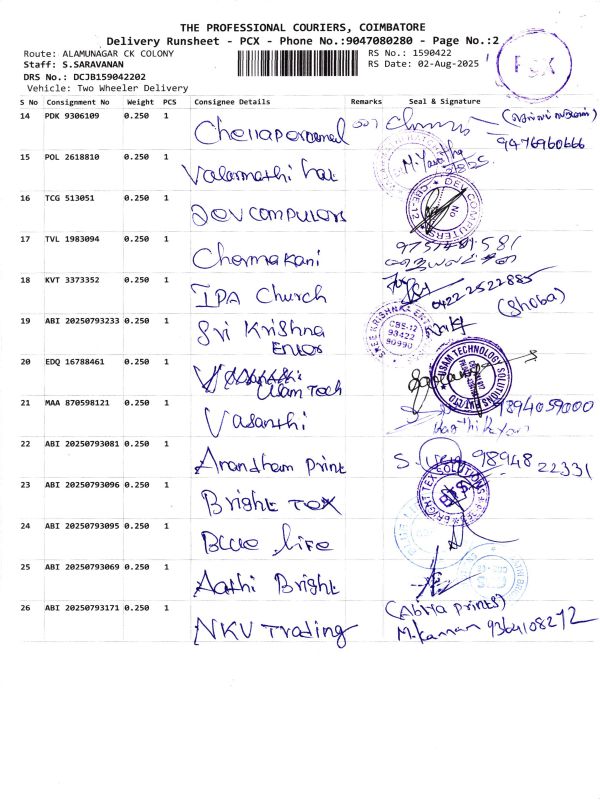 THE PROFESSIONAL COURIERS, COIMBATORE
Delivery Runsheet - PCX - Phone No.:9047080280 - Page No.:2
Route: ALAMUNAGAR CK COLONY
RS No.: 1590422
Staff: S.SARAVANAN
RS Date: 02-Aug-2025
DRS No.: DCJB159042202
Vehicle: Two Wheeler Delivery
PSK
S No Consignment No Weight PCS Consignee Details Remarks Seal & Signature
14 PDK 9306109 0.250 1
9476960666
15 POL 2618810 0.250 1 Valarmathi
16 TCG 513051 0.250 1 Dev computers
DEV COMPUTERS CBE-12
17 TVL 1983094 0.250 1 Chermakani
18 KVT 3373352 0.250 1 IPA Church
0422 2522885
(Shoba)
19 ABI 20250793233 0.250 1 Sri Krishna
Enter
SREE KRISHNA ENT
CBE-12
93422
90990
20 EDQ 16788461 0.250 1
Usam Tech
USAM TECHNOLOGY SOLUTIONS
21 MAA 870598121 0.250 1 Vasanthi
9894059000
22 ABI 20250793081 0.250 1 Anandham Print
98948 22331
23 ABI 20250793096 0.250 1 Bright Tex
BRIGHT TEX SOLUTIONS
24 ABI 20250793095 0.250 1 Blue life
25 ABI 20250793069 0.250 1 Aathi Bright
26 ABI 20250793171 0.250 1 NKV Trading
(Abita prints)
M.Kannan 9364108272